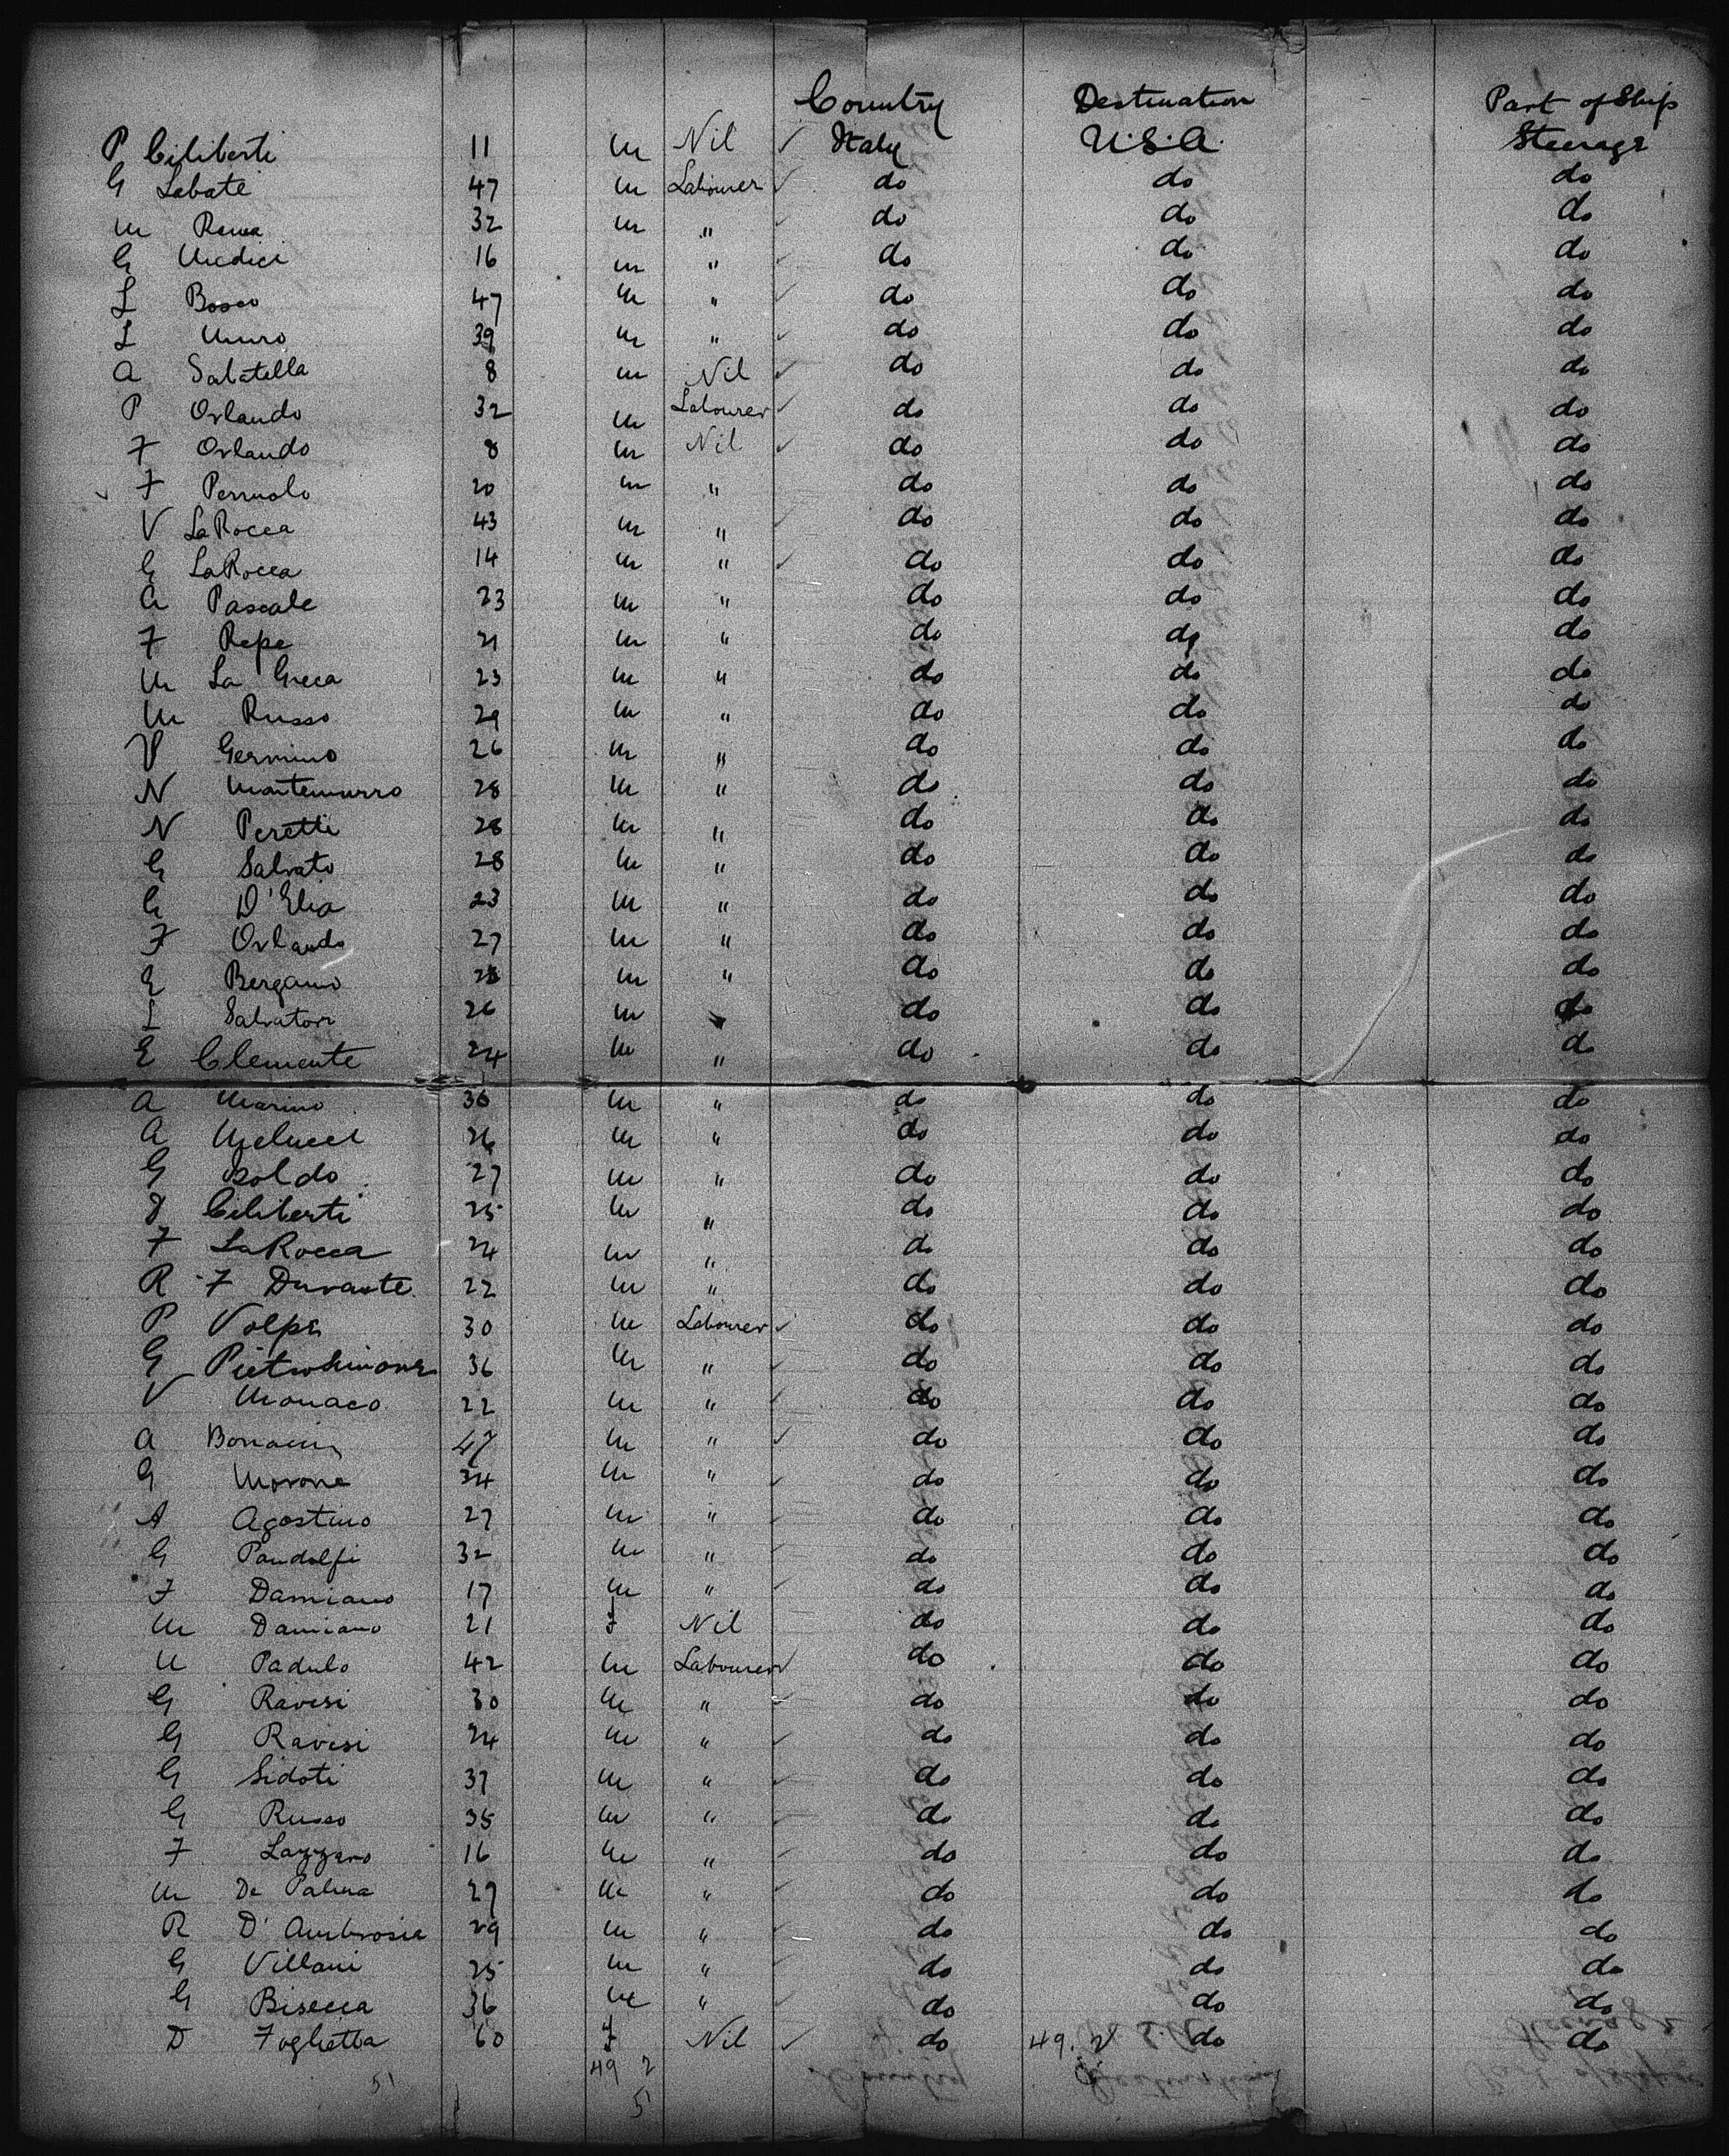 Country Destination Part of Ship
P Ciliberti 11 m Nil ✓ Italy U.S.A. Steerage
G Labate 47 m Labourer ✓ do do do
m Rema 32 m " ✓ do do do
G Medici 16 m " ✓ do do do
L Bosco 47 m " ✓ do do do
L Muro 39 m " ✓ do do do
A Sabatella 8 m Nil ✓ do do do
P Orlando 32 m Labourer ✓ do do do
F Orlando 8 m Nil ✓ do do do
✓ F Perruolo 20 m " do do do
V LaRocca 43 m " do do do
G LaRocca 14 m " ✓ do do do
A Pascale 23 m " do do do
F Repe 21 m " do do do
m La Greca 23 m " do do do
m Russo 29 m " do do do
V Germino 26 m " do do do
N Montemurro 28 m " do do do
N Peretti 28 m " do do do
G Salvato 28 m " do do do
G D'Elia 23 m " do do do
F Orlando 27 m " do do do
E Bergamo m " do do do
L Salvatore 26 m do do do
E Clemente 24 m " do do do
A Marino 36 m " do do do
A Melucci 26 m " do do do
G Soldo 27 m " do do do
Ciliberti 25 m " do do do
F LaRocca 24 m " do do do
R F Durante 22 m " do do do
P Volpe 30 m Labourer ✓ do do do
G 36 m " ✓ do do do
V Monaco 22 m " ✓ do do do
A 47 m " ✓ do do do
G Morone 34 m " ✓ do do do
A Agostino 27 m " ✓ do do do
G Pandolfi 32 m " ✓ do do do
F Damiano 17 m " ✓ do do do
m Damiano 21 F Nil do do do
Padulo 42 m Labourer ✓ do do do
G Ravesi 30 m " ✓ do do do
G Ravesi 24 m " ✓ do do do
G Sidoti 37 m " ✓ do do do
G Russo 35 m " ✓ do do do
F Lazzaro 16 m " ✓ do do do
m De Palma 27 m " ✓ do do do
R D'Ambrosia 29 m " ✓ do do do
G Villani 25 m " ✓ do do do
G Bisecca 36 m " ✓ do do do
D Foglietta 60 F Nil ✓ do 49. 2 do do
49 2
51 51